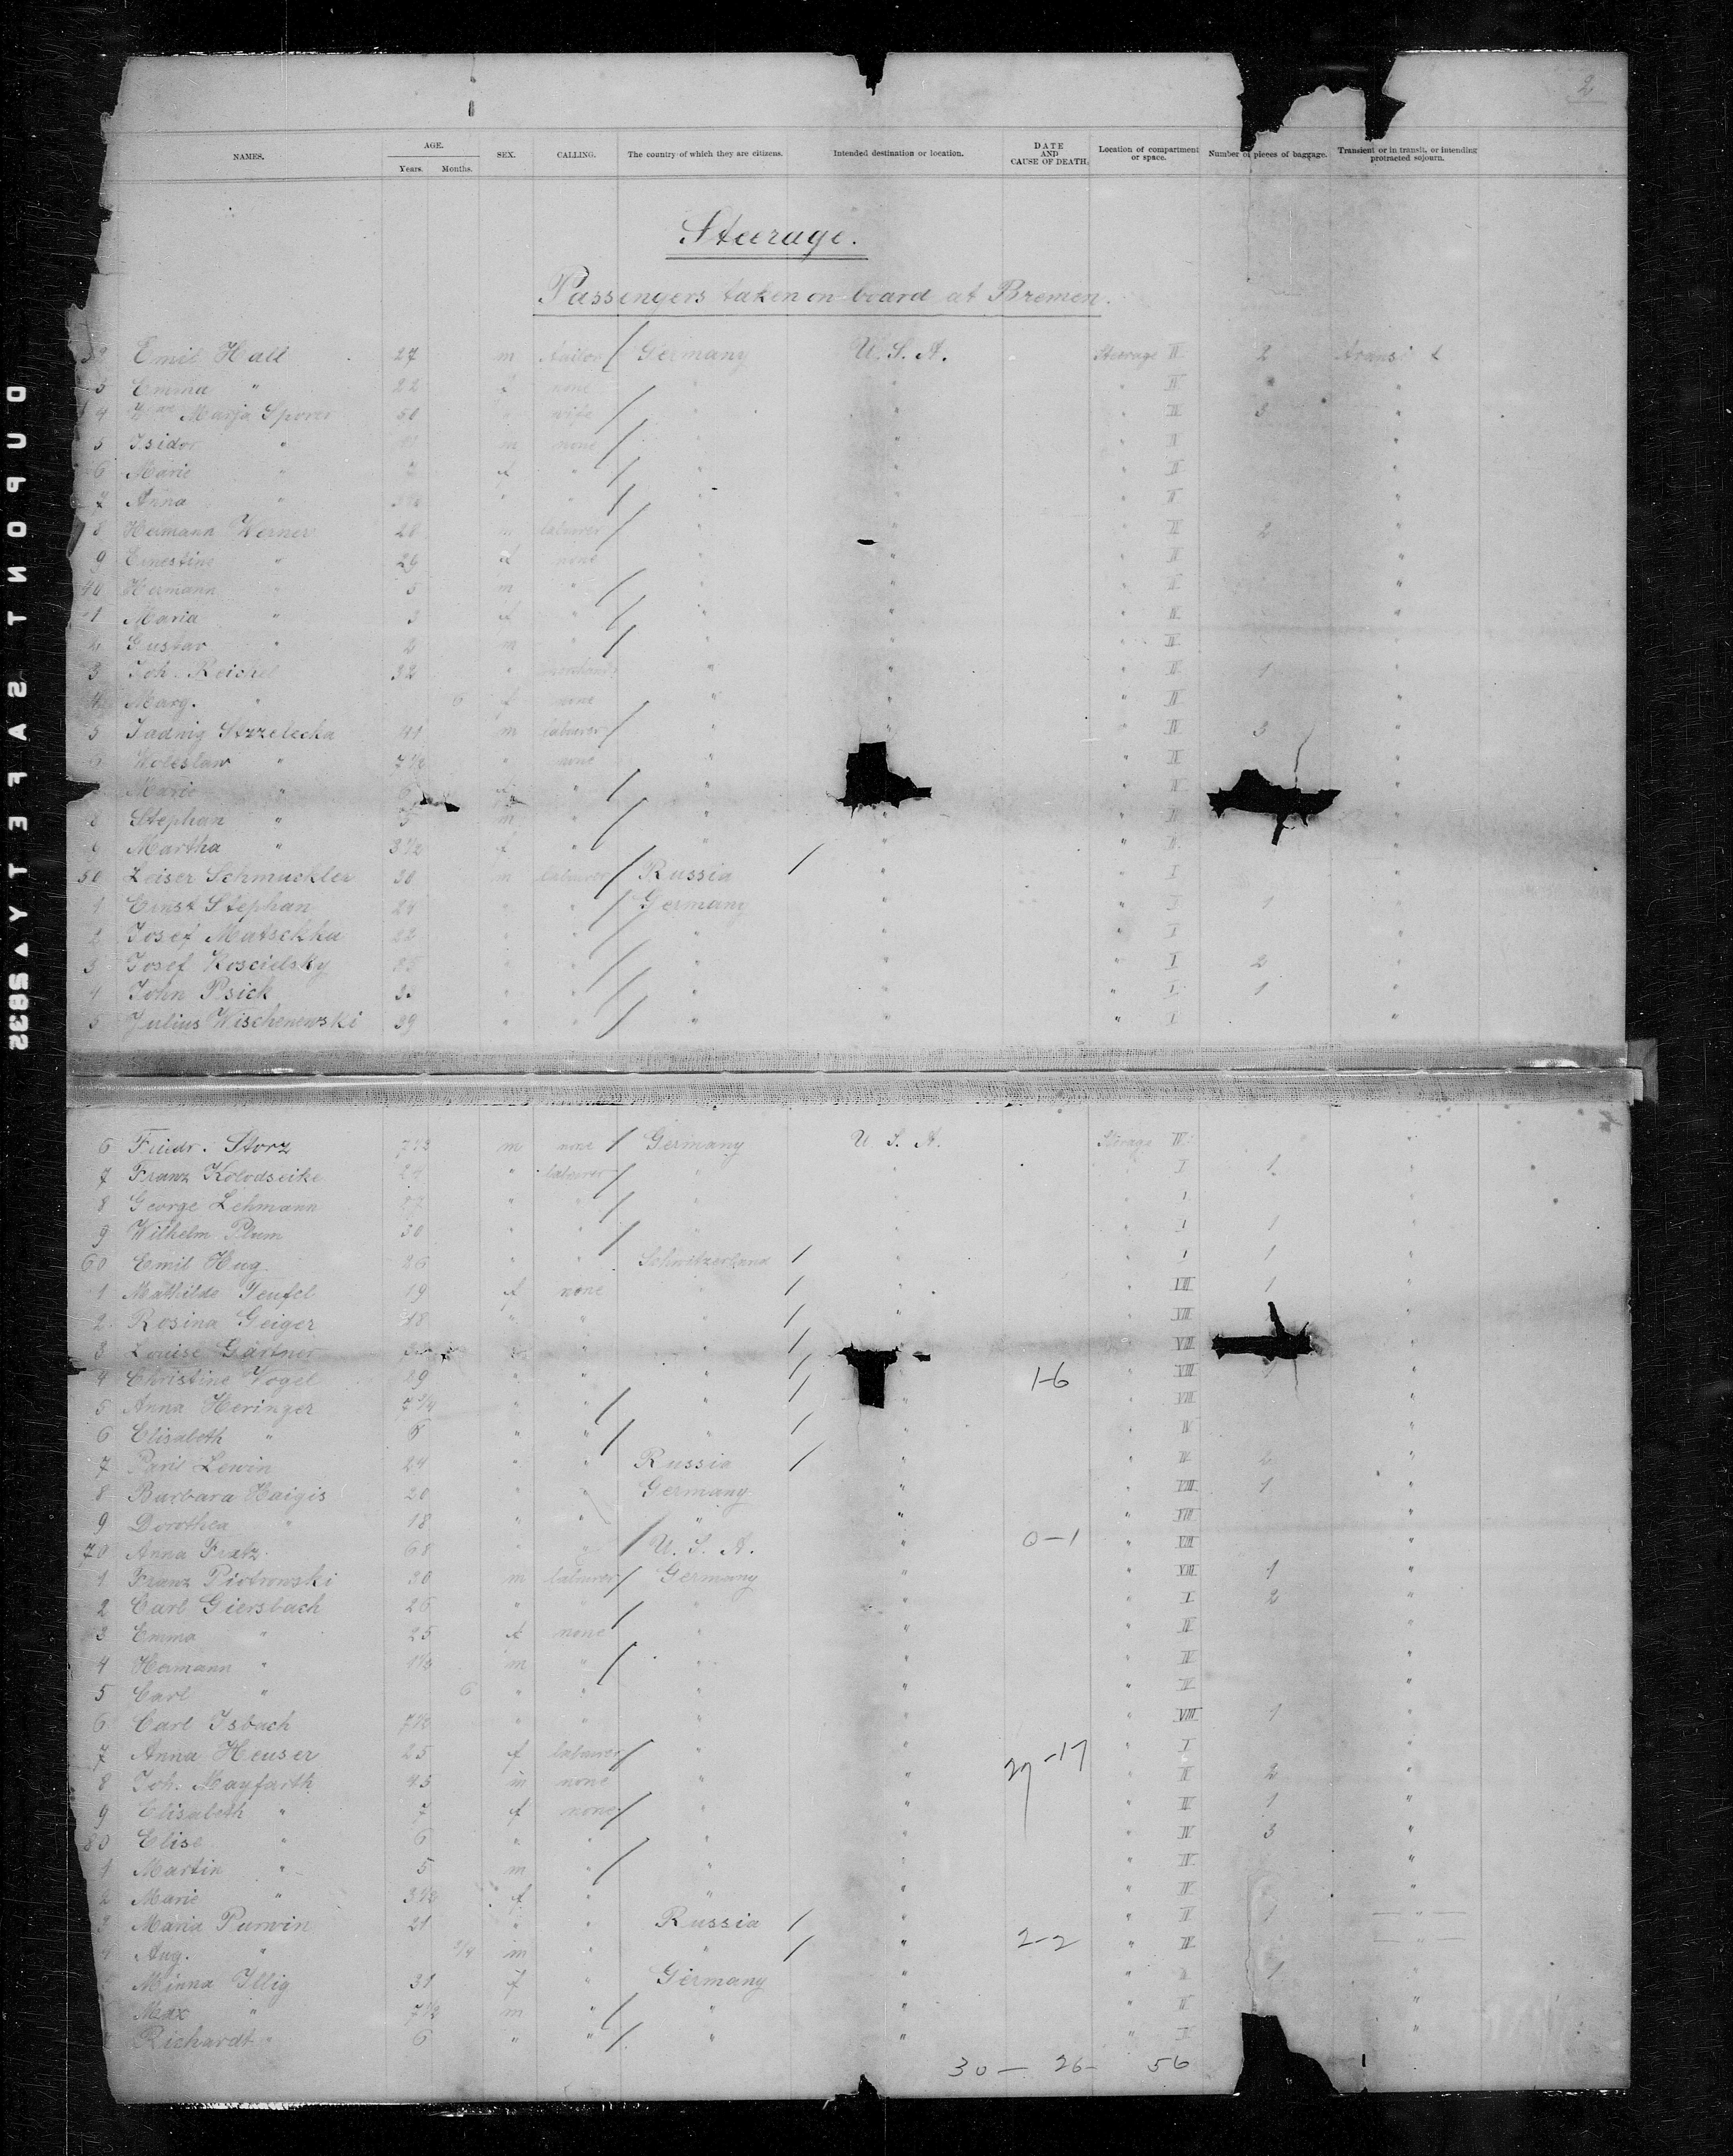 2
NAMES. AGE. Years. Months. SEX. CALLING. The country of which they are citizens. Intended destination or location. DATE AND CAUSE OF DEATH. Location of compartment or space. Number of pieces of baggage. Transient or in transit, or intending protracted sojourn.
Steerage.
Passengers taken on board at Bremen.
Emil Hall 27 m Germany U. S. A. Steerage IV 2 transit
3 Emma " 22 none " IV "
4 Marja Sporer 50 wife " " IV 3 "
5 Isidor " m none " " IV "
6 Marie " f " " " IV "
7 Anna " " " " " IV "
8 Hermann Werner 28 m labourer " " IV 2 "
9 Ernestine " 26 f none " " IV "
40 Hermann " 5 m " " " IV "
1 Maria " 3 f " " " IV "
2 Gustav " 2 m " " " IV "
3 Joh. Reichel 32 " " " IV 1 "
4 Marg. " 6 f none " " IV "
5 Jadwig Strzelecka 41 m labourer " " IV 3 "
6 Woleslaw " 7 1/2 " none " IV "
Marie " 6 " " IV "
8 Stephan " 5 m " " " IV "
9 Martha " 3 1/2 f " " " IV "
50 Leiser Schmuckler 30 m labourer Russia " " I "
1 Ernst Stephan 24 " " Germany " " I 1 "
2 Josef Matschka 22 " " " " " I "
3 Josef Koscielsky 25 " " " " " I 2 "
4 John Psick " " " " " I 1 "
5 Julius Wischenewski 39 " " " " " I "
6 Friedr. Storz 7 1/2 m none Germany U. S. A. Steerage IV "
7 Franz Kolodseike 24 " labourer " " I 1 "
8 George Lehmann " " " " " I "
9 Wilhelm Plum 30 " " " " " I 1 "
60 Emil Hug 26 " " Schwitzerland " " I 1 "
1 Mathilde Teufel 19 f none " " " VIII 1 "
2 Rosina Geiger 18 " " " " " VIII "
3 Louise Gärtner " " " " VIII "
4 Christine Vogel 19 " " " 1-6 " VIII "
5 Anna Heringer 7 3/4 " " " " " VIII "
6 Elisabeth " 6 " " " " " IV "
7 Lewin 24 " " Russia " " IV 2 "
8 Barbara Haigis 20 " " Germany " " VIII 1 "
9 Dorothea " 18 " " " " " VIII "
70 Anna Fratz 68 " " U. S. A. " 0-1 " VIII "
1 Franz Piotrowski 30 m labourer Germany " " VIII 1 "
2 Carl Giersbach 26 " " " " I 2 "
3 Emma " 25 f none " " " IV "
4 Hermann " 1 1/2 m " " " " IV "
5 Carl " 6 " " " " " IV "
6 Carl Isbach 7 1/2 " " " " " VIII 1 "
7 Anna Heuser 25 f labourer " " 29-17 " I "
8 Joh. Mayfarth 45 m none " " " IV 2 "
9 Elisabeth " 7 f none " " " IV 1 "
80 Elise " 6 " " " " " IV 3 "
1 Martin " 5 m " " " " IV "
2 Marie " 3 1/2 f " " " " IV "
3 Maria Purwin 21 " " Russia " " IV 1 "
4 Aug. " 3/4 m " " " 2-2 " IV "
Minna Illig 31 f " Germany " " IV 1 "
Max " 7 1/2 m " " " " IV "
Richardt " 6 " " " " " IV "
30 - 26 - 56
DUPONT SAFETY 2832